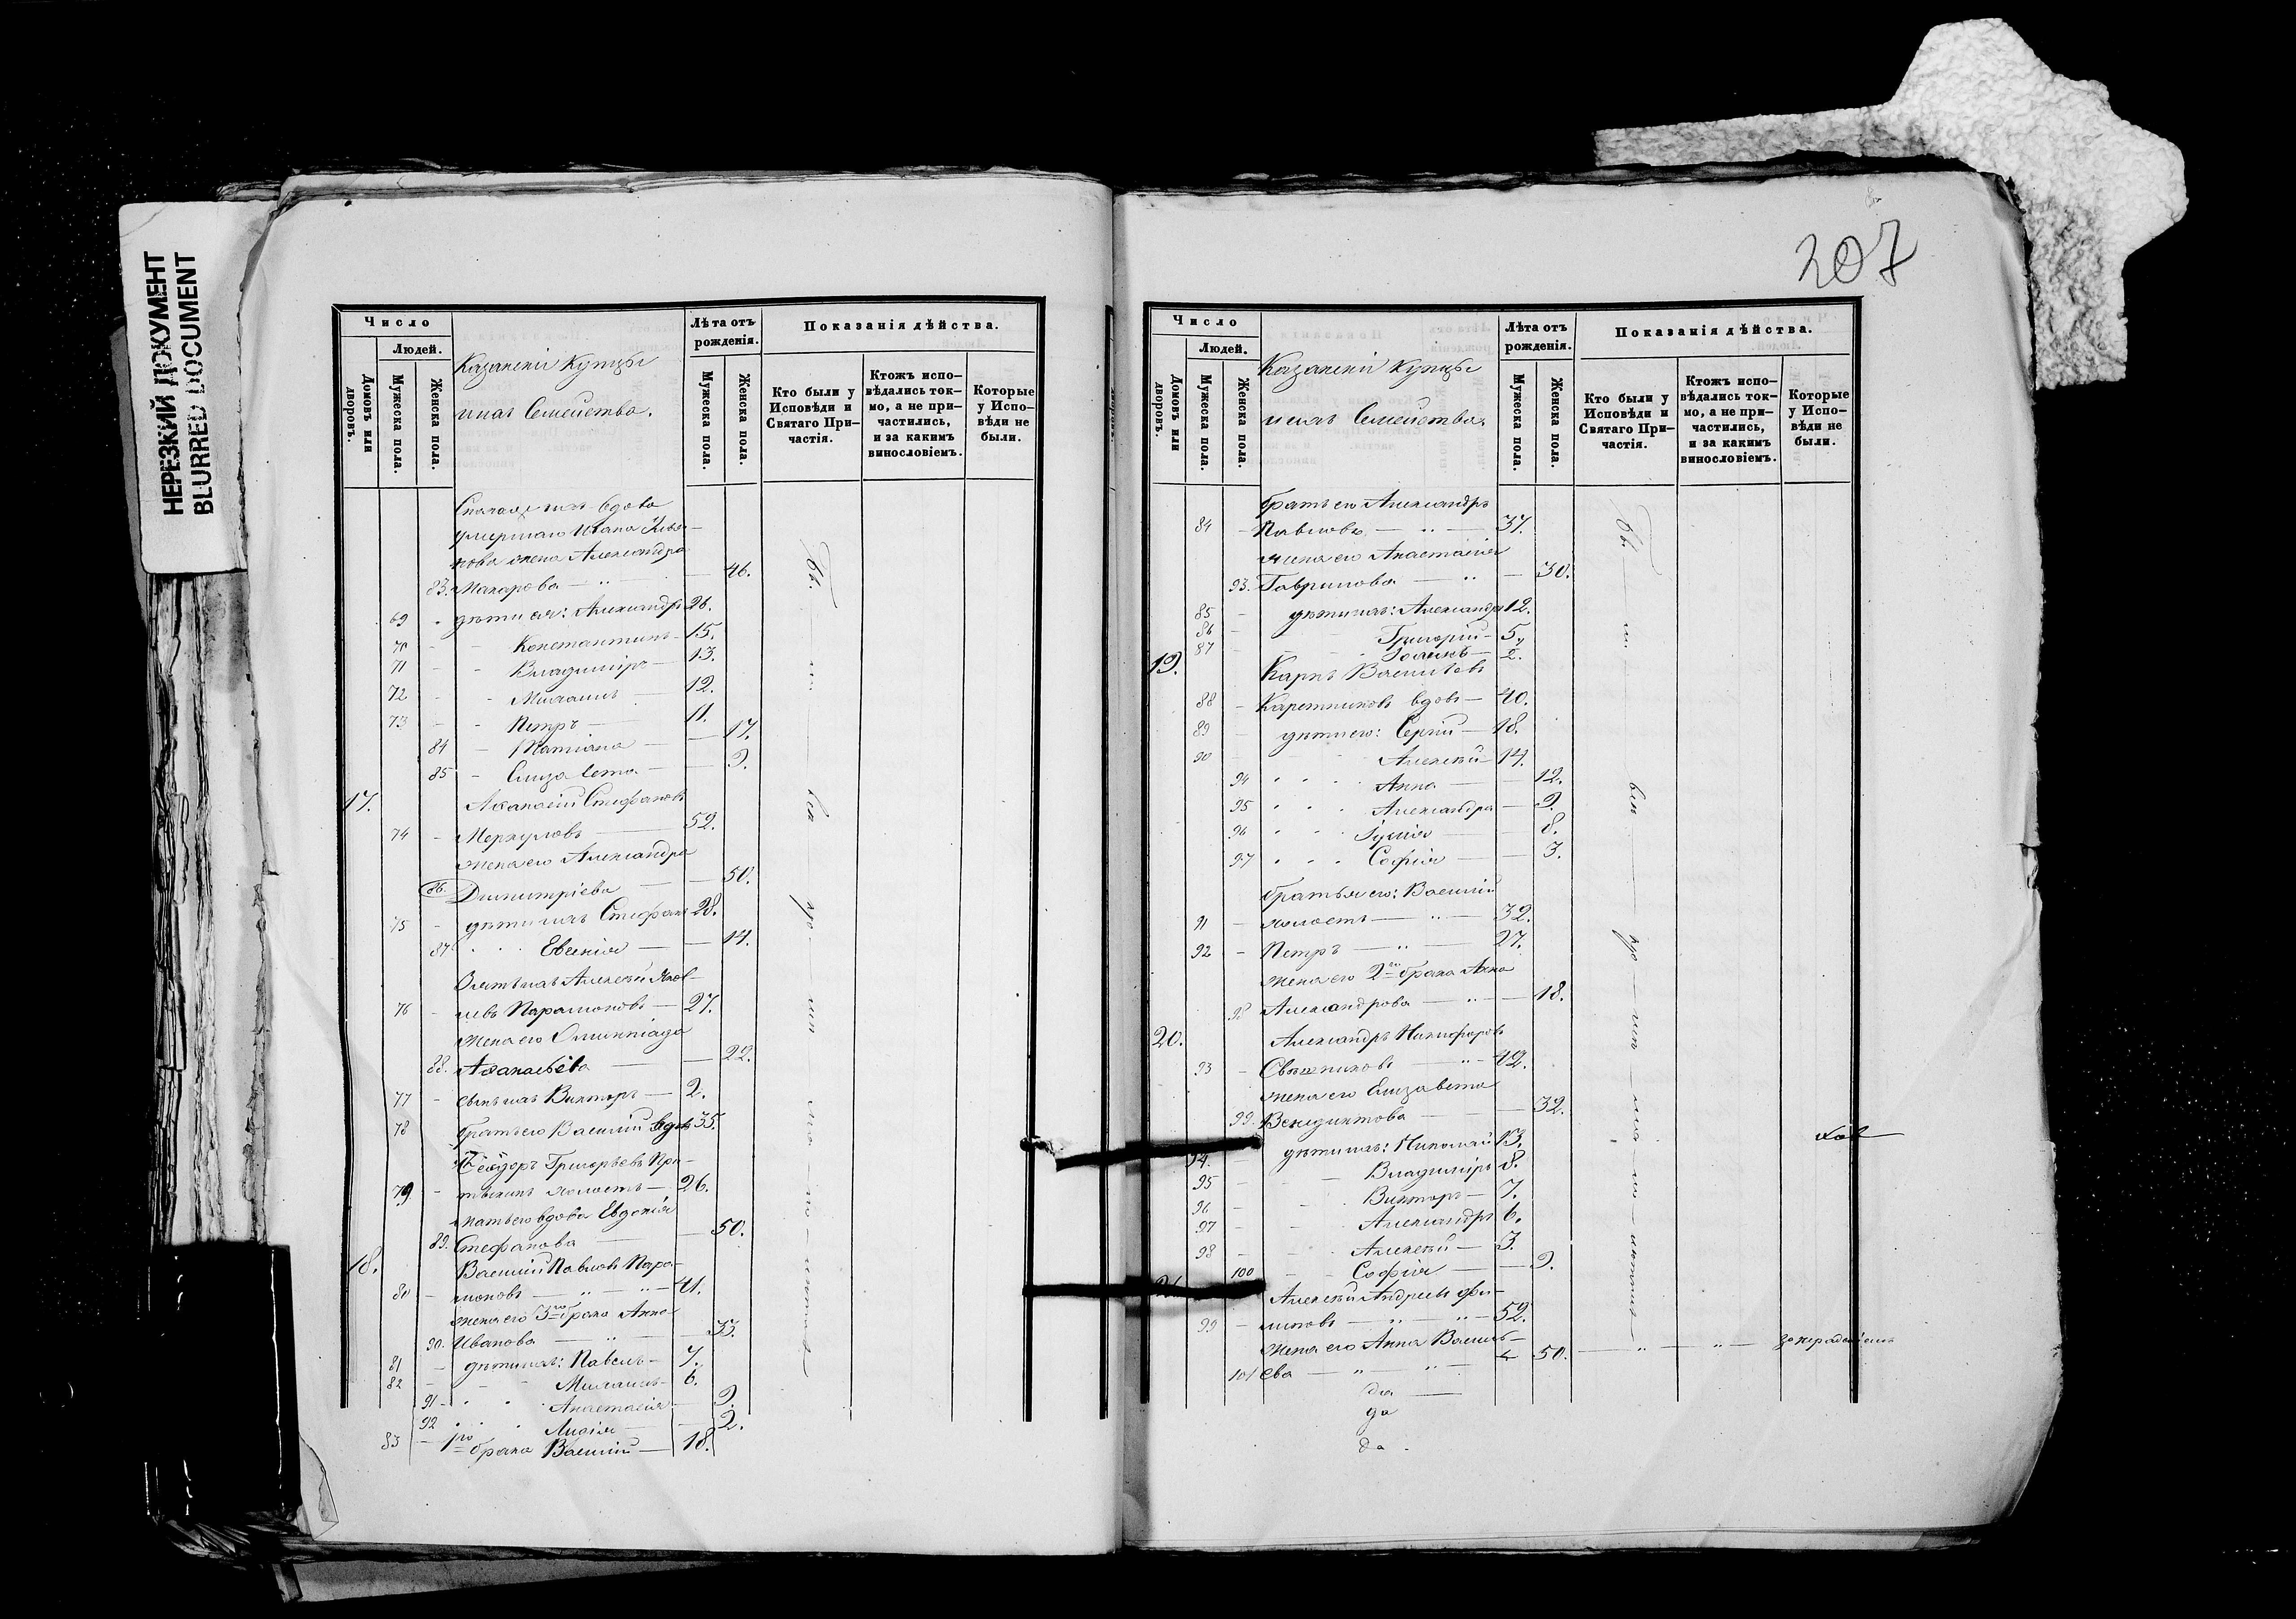 НЕРЕЗКИЙ ДОКУМЕНТ
BLURRED DOCUMENT
207
Число
Людей.
Домовъ или дворовъ.
Мужеска пола.
Женска пола.
Казанскіи Купцы
и ихъ Семейства.
Лѣта отъ рожденія.
Мужеска пола.
Женска пола.
Показанія дѣйства.
Кто были у Исповѣди и Святаго При-частія.
Ктожъ испо-вѣдались ток-мо, а не при-частились, и за какимъ винословіемъ.
Которые у Испо-вѣди не были.
вдова
умершаго Ивана
нова жена Александра
83. Макарова — 46.
69 - дѣти ея: Александръ 26.
70 - - Константинъ - 15.
71 - - Владиміръ — 13.
72 - - Михаилъ — 12.
73 - - Петръ — 11.
84 - Татіана — 17.
85 - Елизавета — 9.
17. Аѳанасій Стефановъ
74 - Меркуловъ — 52.
жена его Александра
86. Димитріева — 50.
75 - дѣти ихъ Стефанъ 28.
87 - Евгенія — 14.
Зять ихъ Алексѣй Яков-
76 - левъ Парамоновъ — 27.
жена его Олимпіада
88. Аѳанасьева — 22.
77 - сынъ ихъ Викторъ — 2.
78 братъ его Василій вдовъ 35.
Ѳеодоръ Григорьевъ При-
79 - холостъ — 26.
мать его вдова Евдокія
89. Стефанова — 50.
18. Василій Павловъ Пара-
80 - моновъ — 41.
жена его 3го брака Анна
90. Иванова — 33.
81 - дѣти ихъ: Павелъ - 7.
82 - - Михаилъ - 6.
91 - Анастасія - 9.
92 Лидія — 2.
83 - 1го брака Василій — 18.
Бы — ли — всѣ
Число
Людей.
Домовъ или дворовъ.
Мужеска пола.
Женска пола.
Казанскіи Купцы
и ихъ Семейства.
Лѣта отъ рожденія.
Мужеска пола.
Женска пола.
Показанія дѣйства.
Кто были у Исповѣди и Святаго При-частія.
Ктожъ испо-вѣдались ток-мо, а не при-частились, и за какимъ винословіемъ.
Которые у Испо-вѣди не были.
братъ его Александръ
84 - Павловъ — 37.
жена его Анастасія
93. Гаврилова — 30.
85 - дѣти ихъ: Александръ 12.
86 - Григорій - 5.
87 - 2.
19. Карпъ Васильевъ
88 - Каретниковъ вдовъ - 40.
89 - дѣти его: Сергій — 18.
90 - Алексѣй - 14.
94 Анна — 12.
95 Александра — 9.
96 Іулія — 8.
97 Софія — 3.
братья его: Василій
91 - холостъ — 32.
92 - Петръ — 27.
жена его 2го брака Анна
98 Александрова — 18.
20. Александръ Никифоровъ
93 - Свѣшниковъ — 42.
жена его Елизавета
99. Венедиктова — 32.
94. - дѣти ихъ: Николай 13.
95 - Владиміръ 8.
96 - Викторъ - 7.
97 - Александръ 6.
98 - Алексѣй - 3.
100 - Софія — 9.
21. Алексѣй Андреевъ Фи-
99 - липовъ — 52.
жена его Анна Василь-
101 ева — 50. за нерадѣніемъ
да
да
да
Бы — ли — всѣ